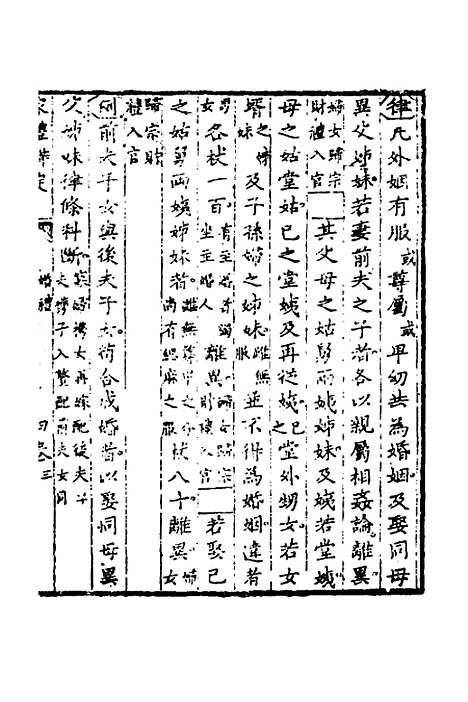 律凡外姻有服或尊屬或卑幼共為婚姻及娶同母
異父姊妹若妻前夫之子者各以親屬相姦論離異
婦女歸宗財禮入官 其父母之姑舅兩姨姊妹及姨若堂姨
母之姑堂姑己之堂姨及再從姨己之堂外甥女若女
壻之姊妹及子孫婦之姊妹雖無服並不得為婚姻違者
男女各杖一百離異婦女歸宗財禮入官 若娶己
之姑舅兩姨姊妹者雖無尊卑之分尚有緦麻之服杖八十離異婦女
歸宗財禮入官
例前夫子女與後夫子女苟合成婚者以娶同母異
父姊妹律條科斷
婚禮 三